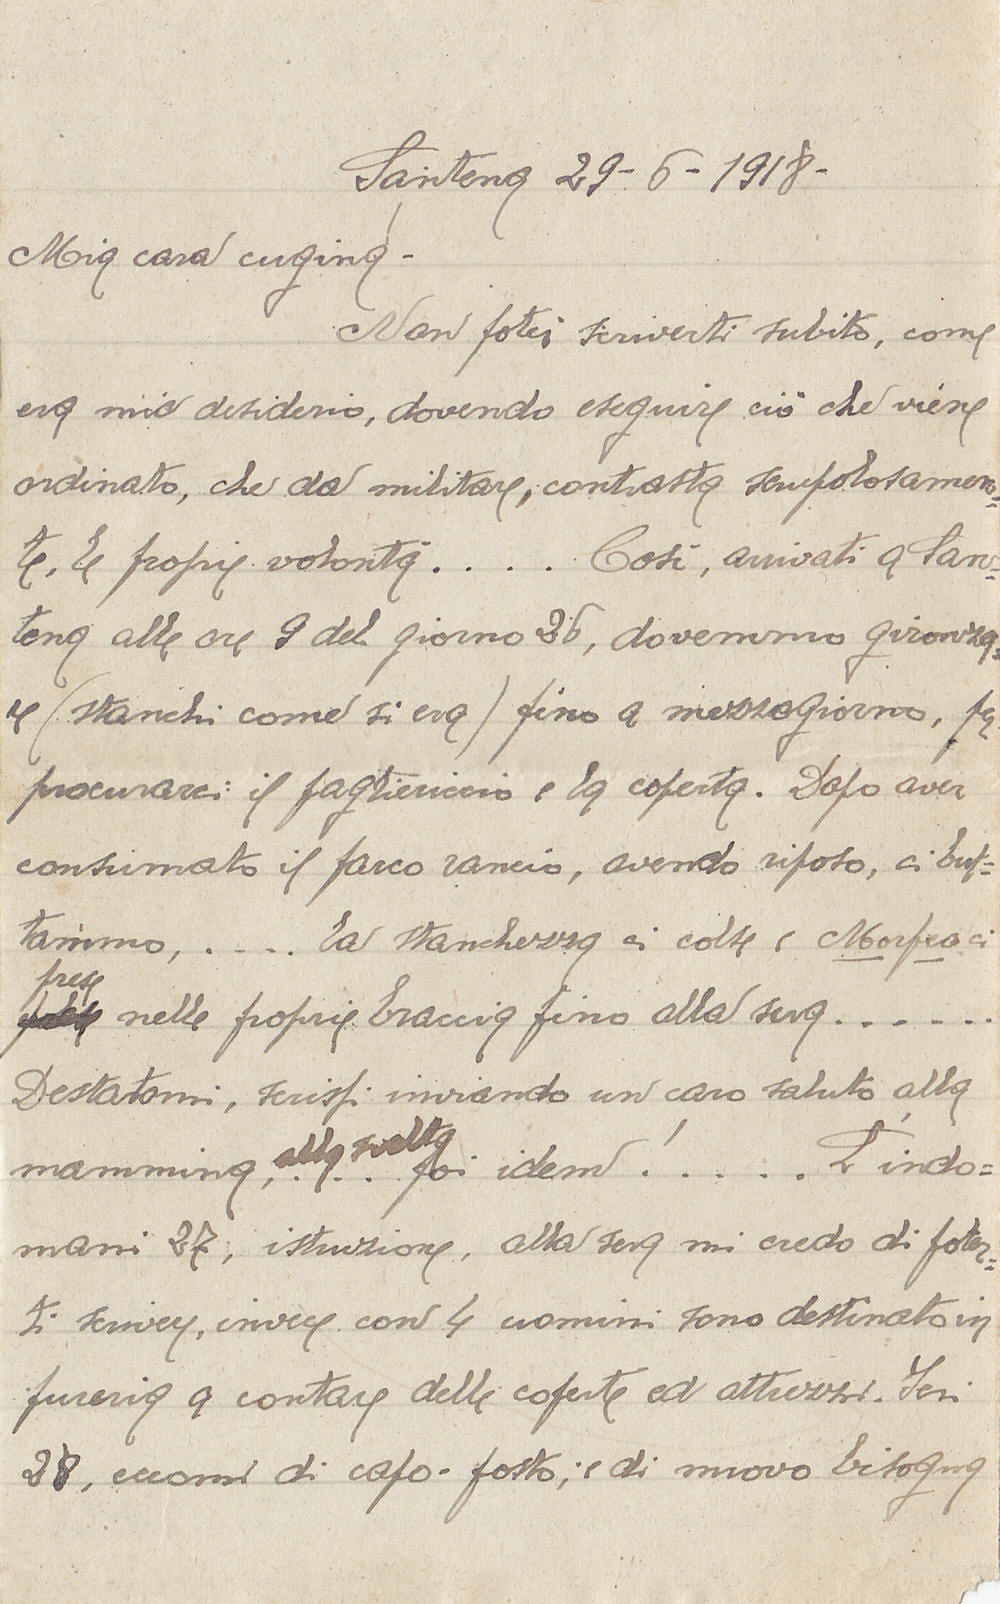 Santena 29-6-1918-
Mia cara cugina -
Non potei scriverti subito, come
era mio desiderio, dovendo eseguire ciò che viene
ordinato, che da militare, contrasta scrupolosamen=
te, le proprie volontà. . . . . Così, arrivati a San=
tena alle ore 9 del giorno 26, dovemmo gironza=
re (stanchi come si era) fino a mezzogiorno, per
procurarci il pagliericcio e la coperta. Dopo aver
consumato il parco rancio, avendo riposo, ci but=
tammo, . . . . La stanchezza ci colse e Morfeo ci
prese
nelle proprie braccia fino alla sera . . . . . .
Destatomi, scrissi inviando un caro saluto alla
mammina, alla svelta . . . poi idem! . . . . . L'indo=
mani 27, istruzione, alla sera mi credo di poter=
ti scrivere, invece con 4 uomini sono destinato in
fureria a contare delle coperte ed attrezzi. Ieri
28, eccomi di capo-posto; e di nuovo bisogna